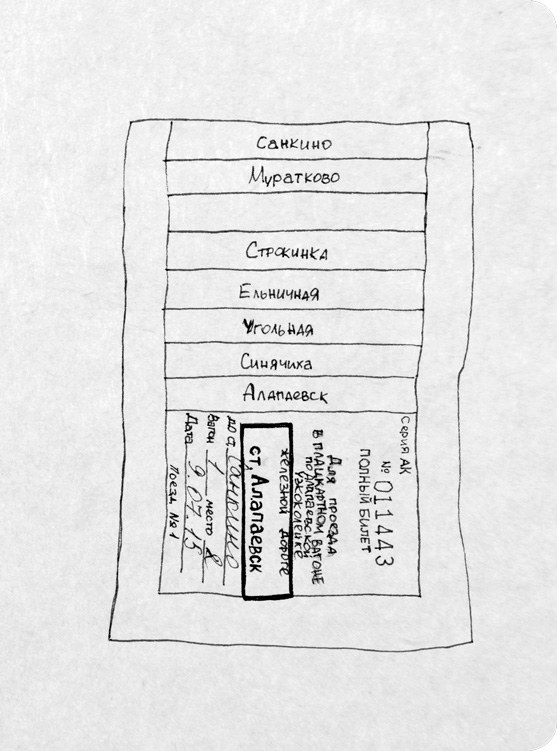 Санкино
Муратково
Строкинка
Ельничная
Угольная
Синячиха
Алапаевск
Серия АК
№ 011443
ПОЛНЫЙ БИЛЕТ
Для проезда
в плацкартном вагоне
по Алапаевской
узкоколейке
железной дороге
ст. Алапаевск
до ст. Санкино
Вагон 1 место 8
Дата 9.07.15
Поезд №1